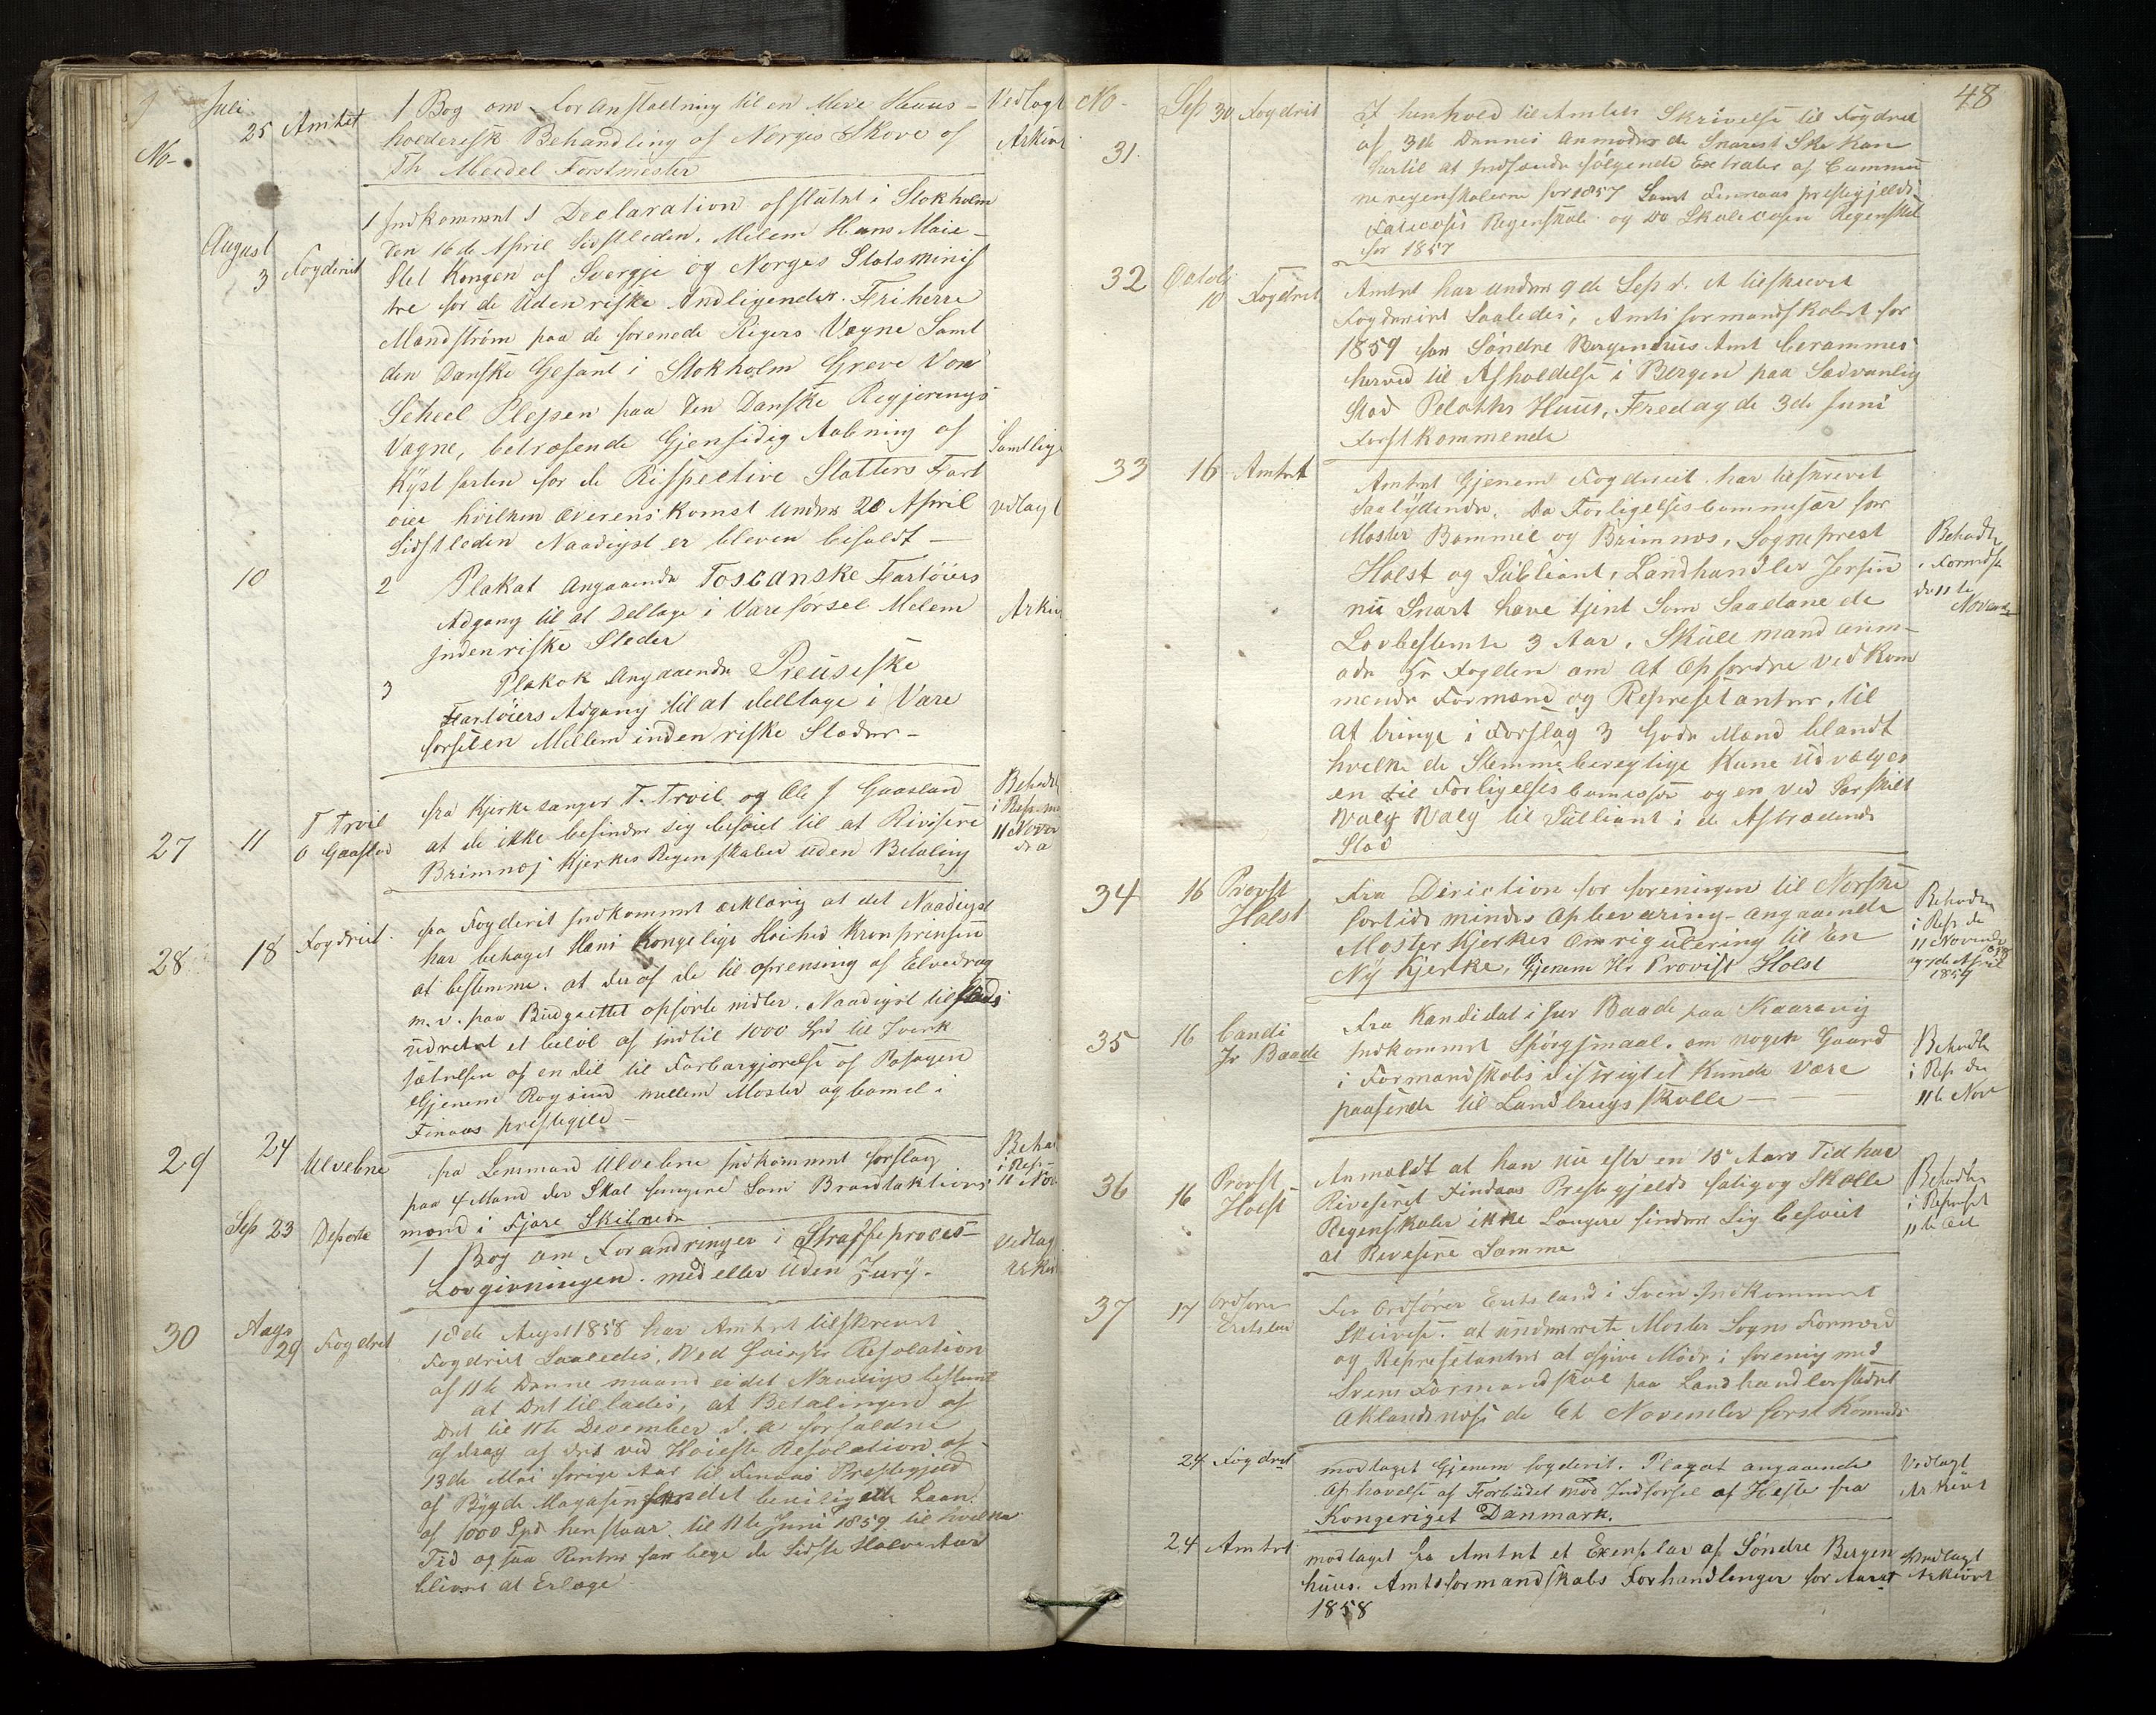 Juli
No-
25 Amtet
1 Bog om Foranstaltning til en Mere Huus-
holderisk Behandling af Norges Skove af
Th Meidel Forstmester
Vedlagt
Arkivet
August
3 Fogderiet
1 Indkommet 1 Declaration afsluttet i Stokholm
den 16de April Sidstleden, Melem Hans Maie-
stet Kongen af Svergje og Norges Statsminis
tre for de Udenriske Andligender. Friherre
Mandström paa de forenede Rigers Vægne Samt
den Danske Gesant i Stokholm Greve Von
Scheel Plessen paa den Danske Regjerings
Vægne, betræfende Gjensidig Aabning af
Kystfarten for de Rispective Statters Fart
øier hvilken Overenskomst under 20 April
Sidstleden Naadigst er bleven bifaldt -
Samtlige
vedlagt
Arkiv
10
2 Plakat angaaende Toscanske Fartøiers
Adgang til at Deltage i Vareførsel Melem
indenriske Steder
3 Plakat Angaaende Preusiske
Fartøiers Adgang til at delltage i Vare
førselen Mellem indenriske Stæder -
27 11 T Trvil
O Gaaslad
fra Kjerkesanger T. Trvil og Ole J Gaasland
at de ikke befinder sig beføiet til at Rivisere
Brimnæs Kjerkes Regenskaber uden Betaling
Behadt
i Rep. me
11 Novbr
d a
28 18 Fogdriet.
fra Fogderit Indkommet erklærig at det Naadigst
har behaget Hans Kongelige Høihed Kronprinsen
at bestemme. at der af de til oprensing af Elvedrag
m. v. paa Budgættet opførte midler. Naadigst tilstaads
udredet et beløb af indtil 1000 Spd til Iverk
sætelsen af en del til Farbargjørelse af Pasagen
Gjenem Røgsund mellem Moster og Bomel i
Finaas prestegjeld -
29 24 Ulvebne
fra Lensmand Ulvebne Indkommet forslag
paa 4 Mand der Skal fungere Som Brandtaktions
mænd i Fjære Skibrede
Behad
i Rep -
11 Nov
Sep 23 Deporte
1 Bog om Forandringer i Straffeproces-
Lovgivningen. med eller uden Jury.
Vedlag
Arkiv
30 Augs
29 Fogdret
18de Augst 1858 har Amtet tilskrevet
Fogdriet Saaledes, Ved høieste Resolation
af 11te Denne maaned er det Naadigst bestemt
at det tillades, at Betalingen af
det til 11te December d. a. forfaldne
afdrag af det ved Høieste Resolation af
13de Mai forige Aar til Finaas Prestegjeld
af Bygde Magasinfondet beviligede Laan
af 1000 Spd henstaar til 11te Juni 1859 til hvilken
Tid ogsaa Renter for bege de Sidste Halve Aar
blivet at Erlæge -
48
No-
31. Sep 30 Fogdrit
I henhold til Amtets Skrivelse til Fogdriet
af 3de Dennes anmodes de Snarest Ske kan
hertil at Indsende følgende Extrater af Commu
neregenskaberne for 1857 Samt Finnaas prestegjelds
Faticasses Regenskab og Do Skolecasen Regenskab
for 1857
32 Octob
10 Fogdret
Amtet har under 9de Sep d. A tilskrevet
Fogderiet Saaledes, Amts formandskabet for
1859 for Søndre Bergenhuus Amt berammes
herved til Afholdelse i Bergen paa Sædvanlig
Stad Peloths Huus, Fredag de 3de Juni
Førstkommende
33 16 Amtet
Amtet Gjenem Fogderiet har tilskrevet
Saalydende. Da Forligelsescommesær for
Moster Bommel og Brimnes, Sogneprest
Holst og Subliant, Landhandler Jersin
nu Snart have tjent Som Saadane de
Lovbestemte 3 Aar, Skulle mand anm-
ode Hr Fogden om at opfordre vedkom
mende Formænd og Represetanter, til
at bringe i Forslag 3 Gode Mænd blandt
hvilke de Stemmeberegtige kune udvælges
en til Forligelsescomissær og en ved Særskilt
Valg Valg til Sulliant i de Aftrædende
Stæd
Behadt
. Formds
den 11te
Novembr
34 16 Provst
Holst
Fra Diriction for foreningen til Norske
fortids minders opbevaring - angaaende
Moster Kjerkes Omregulering til En
Ny Kjerke, Gjenem Hr Provist Holst
Behadn
i Rep. de
11 Novembr
1858
og de April
1859
35 16 Candi
Jr Baade
Fra Kandidat i jur Baade paa Kaarevig
Indkommet Spørgsmaal. om nogen Gaard
i Formandskabs distrigtet kunde være
paasende til Landbrugs skolle -
Behadt
i Rep den
11te Nov
36 16 Provst
Holst
Anmældt at han nu efter en 15 Aars Tid har
Riveseret Findaas Prestegjelds fatig og Skolle
Regenskaber ikke Længere finder Sig beføiet
at Revesere Samme
Behadten
i Represt
11te
37 17 Ordfører
Eritsland
Fra Ordfører Eritsland i Sven Indkommet
Skrivese. at underrete Moster Sogns Formænd
og Represetanter at afgive Møde i forenig med
Svens Formandskab paa Landhandlerstædet
Aklandsnæs de 6te November først Komende
24 Fogdret
modtaget Gjenem fogderit. Plagat angaaende
ophævelse af Forbudet mod Indførsel af Heste fra
Kongeriget Danmark.
Vedlagt
Arkivet
24 Amtet
modtaget fra Amtet et Exenplar af Søndre Bergen
huus. Amtsformandskabs Forhandlinger for Aaret
1858
Vedlagt
Arkivet